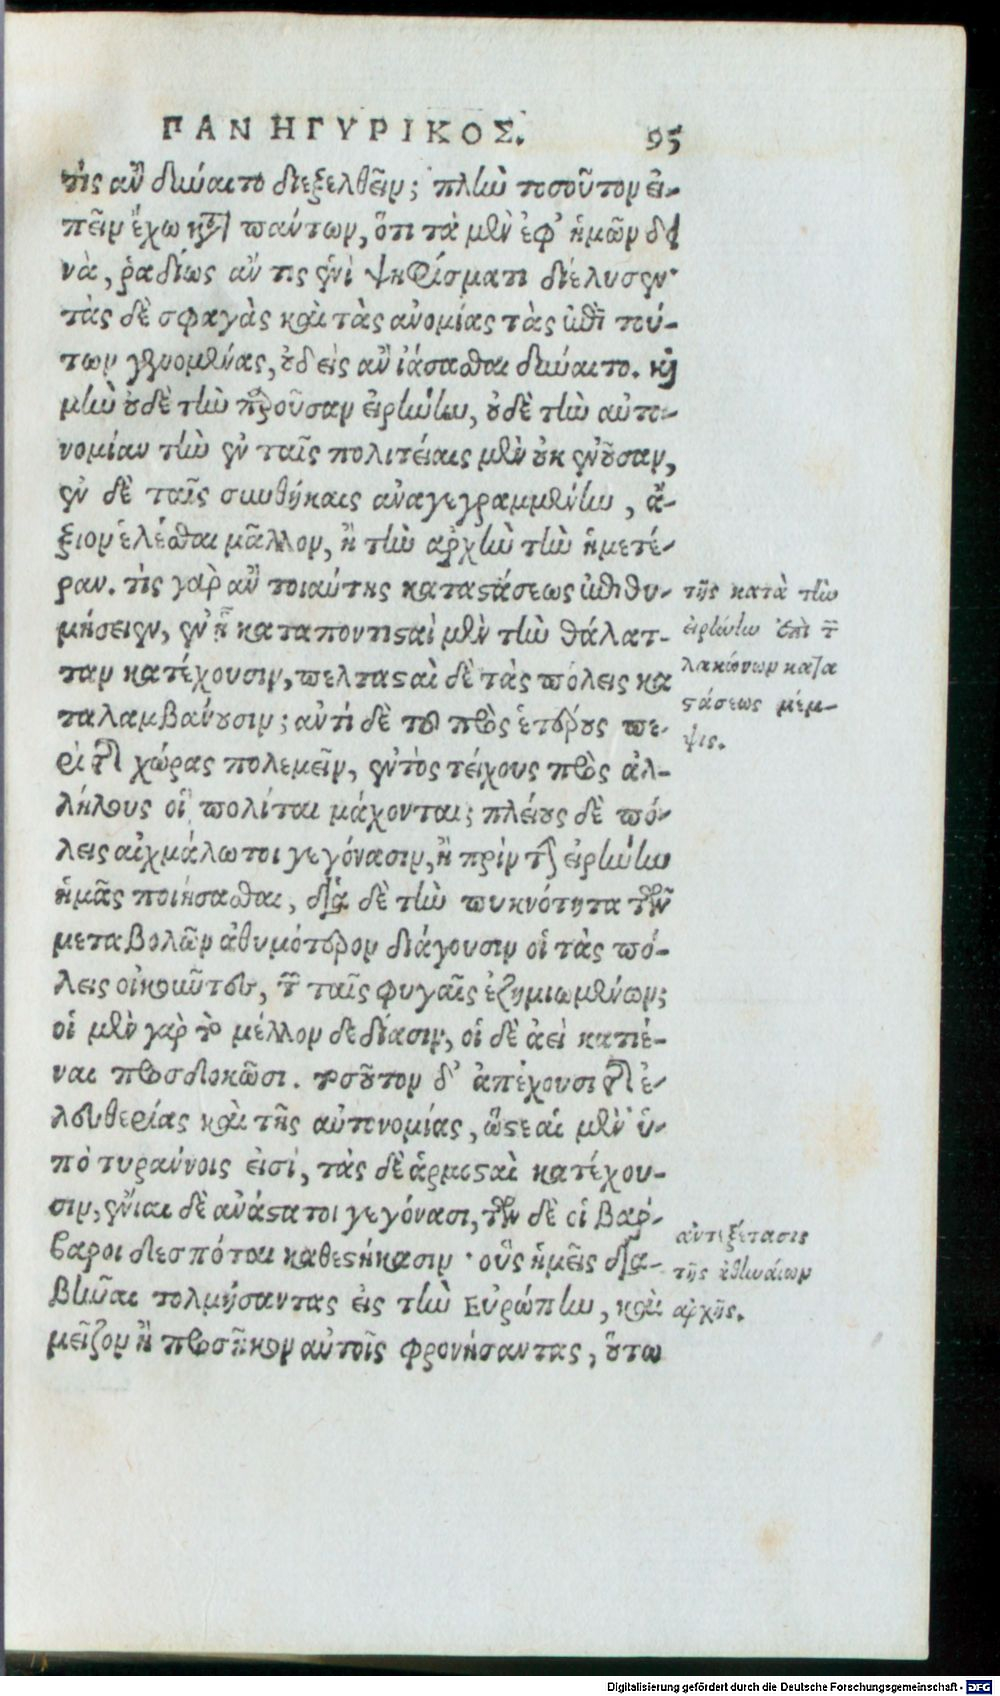 ΠΑΝΗΓΥΡΙΚΟΣ. 95
τίς ἂν δύναιτο διεξελθεῖν; πλὴν τοσοῦτον εἰ-
πεῖν ἔχω κτ᾽ πάντων, ὅτι τὰ μὲν ἐφ᾽ ἡμῶν δει
νὰ, ῥαδίως ἄν τις ἑνὶ ψηφίσματι διέλυσεν·
τὰς δὲ σφαγὰς καὶ τὰς ἀνομίας τὰς ἐπὶ τού-
των γενομένας, οὐδεὶς ἂν ἰάσασθαι δύναιτο. καὶ
μὴν οὐδὲ τὴν παροῦσαν εἰρήνην, οὐδὲ τὴν αὐτο-
νομίαν τὴν ἐν ταῖς πολιτείαις μὲν οὐκ ἐνοῦσαν,
ἐν δὲ ταῖς συνθήκαις ἀναγεγραμμένην, ἄ-
ξιον ἑλέσθαι μᾶλλον, ἢ τὴν ἀρχὴν τὴν ἡμετέ-
ραν. τίς γὰρ ἂν τοιαύτης καταστάσεως ἐπιθυ-
μήσειεν, ἐν ᾗ καταποντισταὶ μὲν τὴν θάλατ-
ταν κατέχουσιν, πελτασταὶ δὲ τὰς πόλεις κα
ταλαμβάνουσιν; ἀντὶ δὲ τοῦ πρὸς ἑτέρους πε-
ρὶ τῆς χώρας πολεμεῖν, ἐντὸς τείχους πρὸς ἀλ-
λήλους οἱ πολῖται μάχονται; πλείους δὲ πό-
λεις αἰχμάλωτοι γεγόνασιν, ἢ πρὶν τὴν εἰρήνην
ἡμᾶς ποιήσασθαι, διὰ δὲ τὴν πυκνότητα τῶν
μεταβολῶν ἀθυμότερον διάγουσιν οἱ τὰς πό-
λεις οἰκοῦντες, τῶν ταῖς φυγαῖς ἐζημιωμένων;
οἱ μὲν γὰρ τὸ μέλλον δεδίασιν, οἱ δὲ ἀεὶ κατιέ-
ναι προσδοκῶσι. τοσοῦτον δ᾽ ἀπέχουσι τῆς ἐ-
λευθερίας καὶ τῆς αὐτονομίας, ὥστε αἱ μὲν ὑ-
πὸ τυράννοις εἰσὶ, τὰς δὲ ἁρμοσταὶ κατέχου-
σιν, ἔνιαι δὲ ἀνάστατοι γεγόνασι, τῶν δὲ οἱ βάρ-
βαροι δεσπόται καθεστήκασιν· οὓς ἡμεῖς δια-
βῆναι τολμήσαντας εἰς τὴν Εὐρώπην, καὶ
μεῖζον ἢ προσῆκον αὐτοῖς φρονήσαντας, οὕτω
τῆς κατὰ τὴν
εἰρήνην ἐπὶ τῶν
λακώνων κατα
στάσεως μέμ-
ψις.
ἀντεξέτασις
τῆς ἀθηναίων
ἀρχῆς.
Digitalisierung gefördert durch die Deutsche Forschungsgemeinschaft - DFG